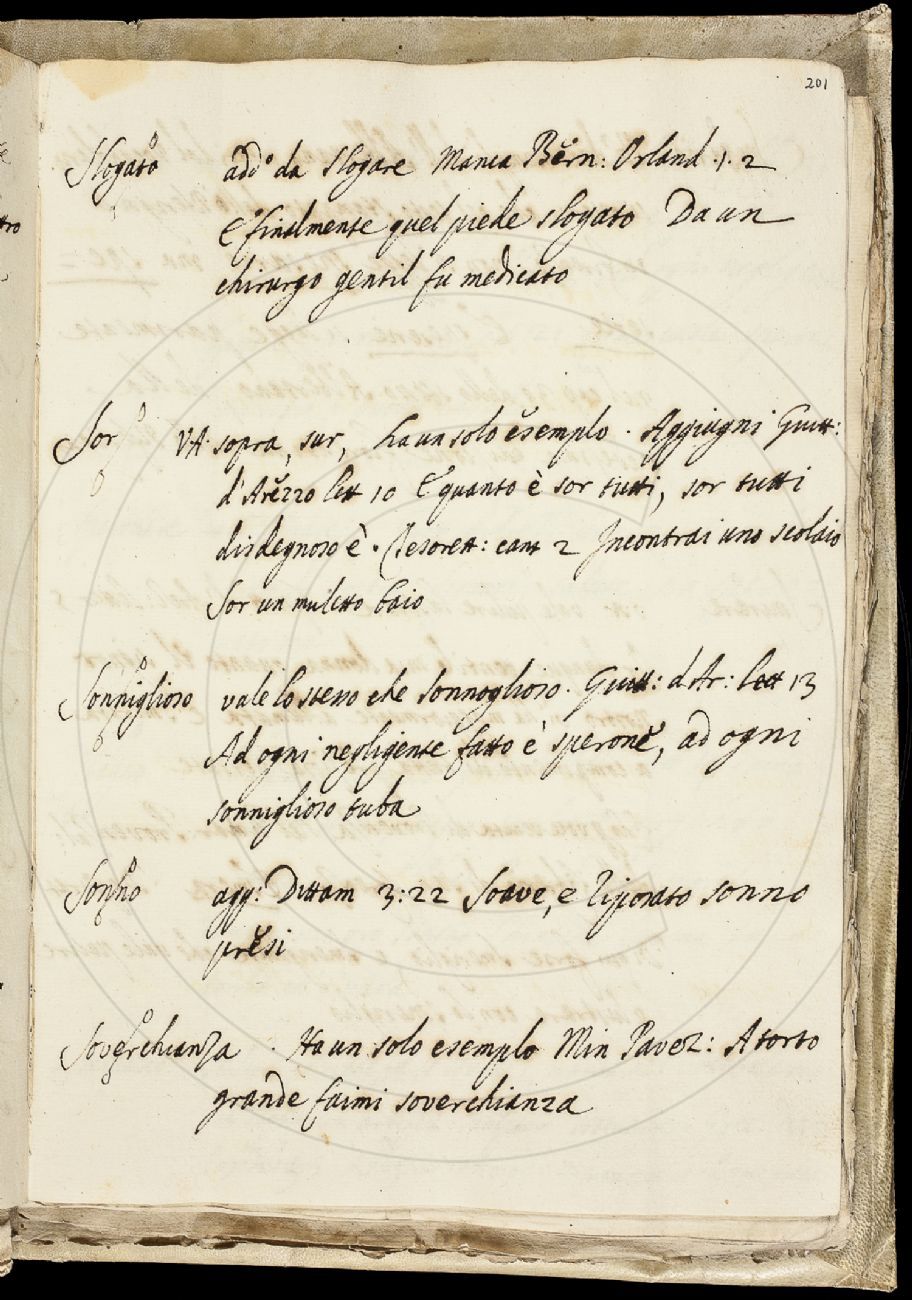 201
Slogato add° da slogare Manca Bern: Orland. 1. 2
E finalmente quel piede slogato Da un
chirurgo gentil fu medicato
Sor VA. sopra, sur, ha un solo esemplo. Aggiugni Guitt:
d'Arezzo lett 10 E quanto è sor tutti, sor tutti
disdegnoso è. Tesorett: cant 2 Incontrai uno scolaio
Sor un muletto baio
Sonniglioso vale lo stesso che sonnoglioso. Guitt: d'Ar: lett 13
Ad ogni negligente fatto è sperone, ad ogni
sonniglioso tuba
Sonno agg: Dittam 3:22 Soave, e riposato sonno
presi
Soverchianza. Ha un solo esemplo Min Pavez: A torto
grande faimi soverchianza
tro